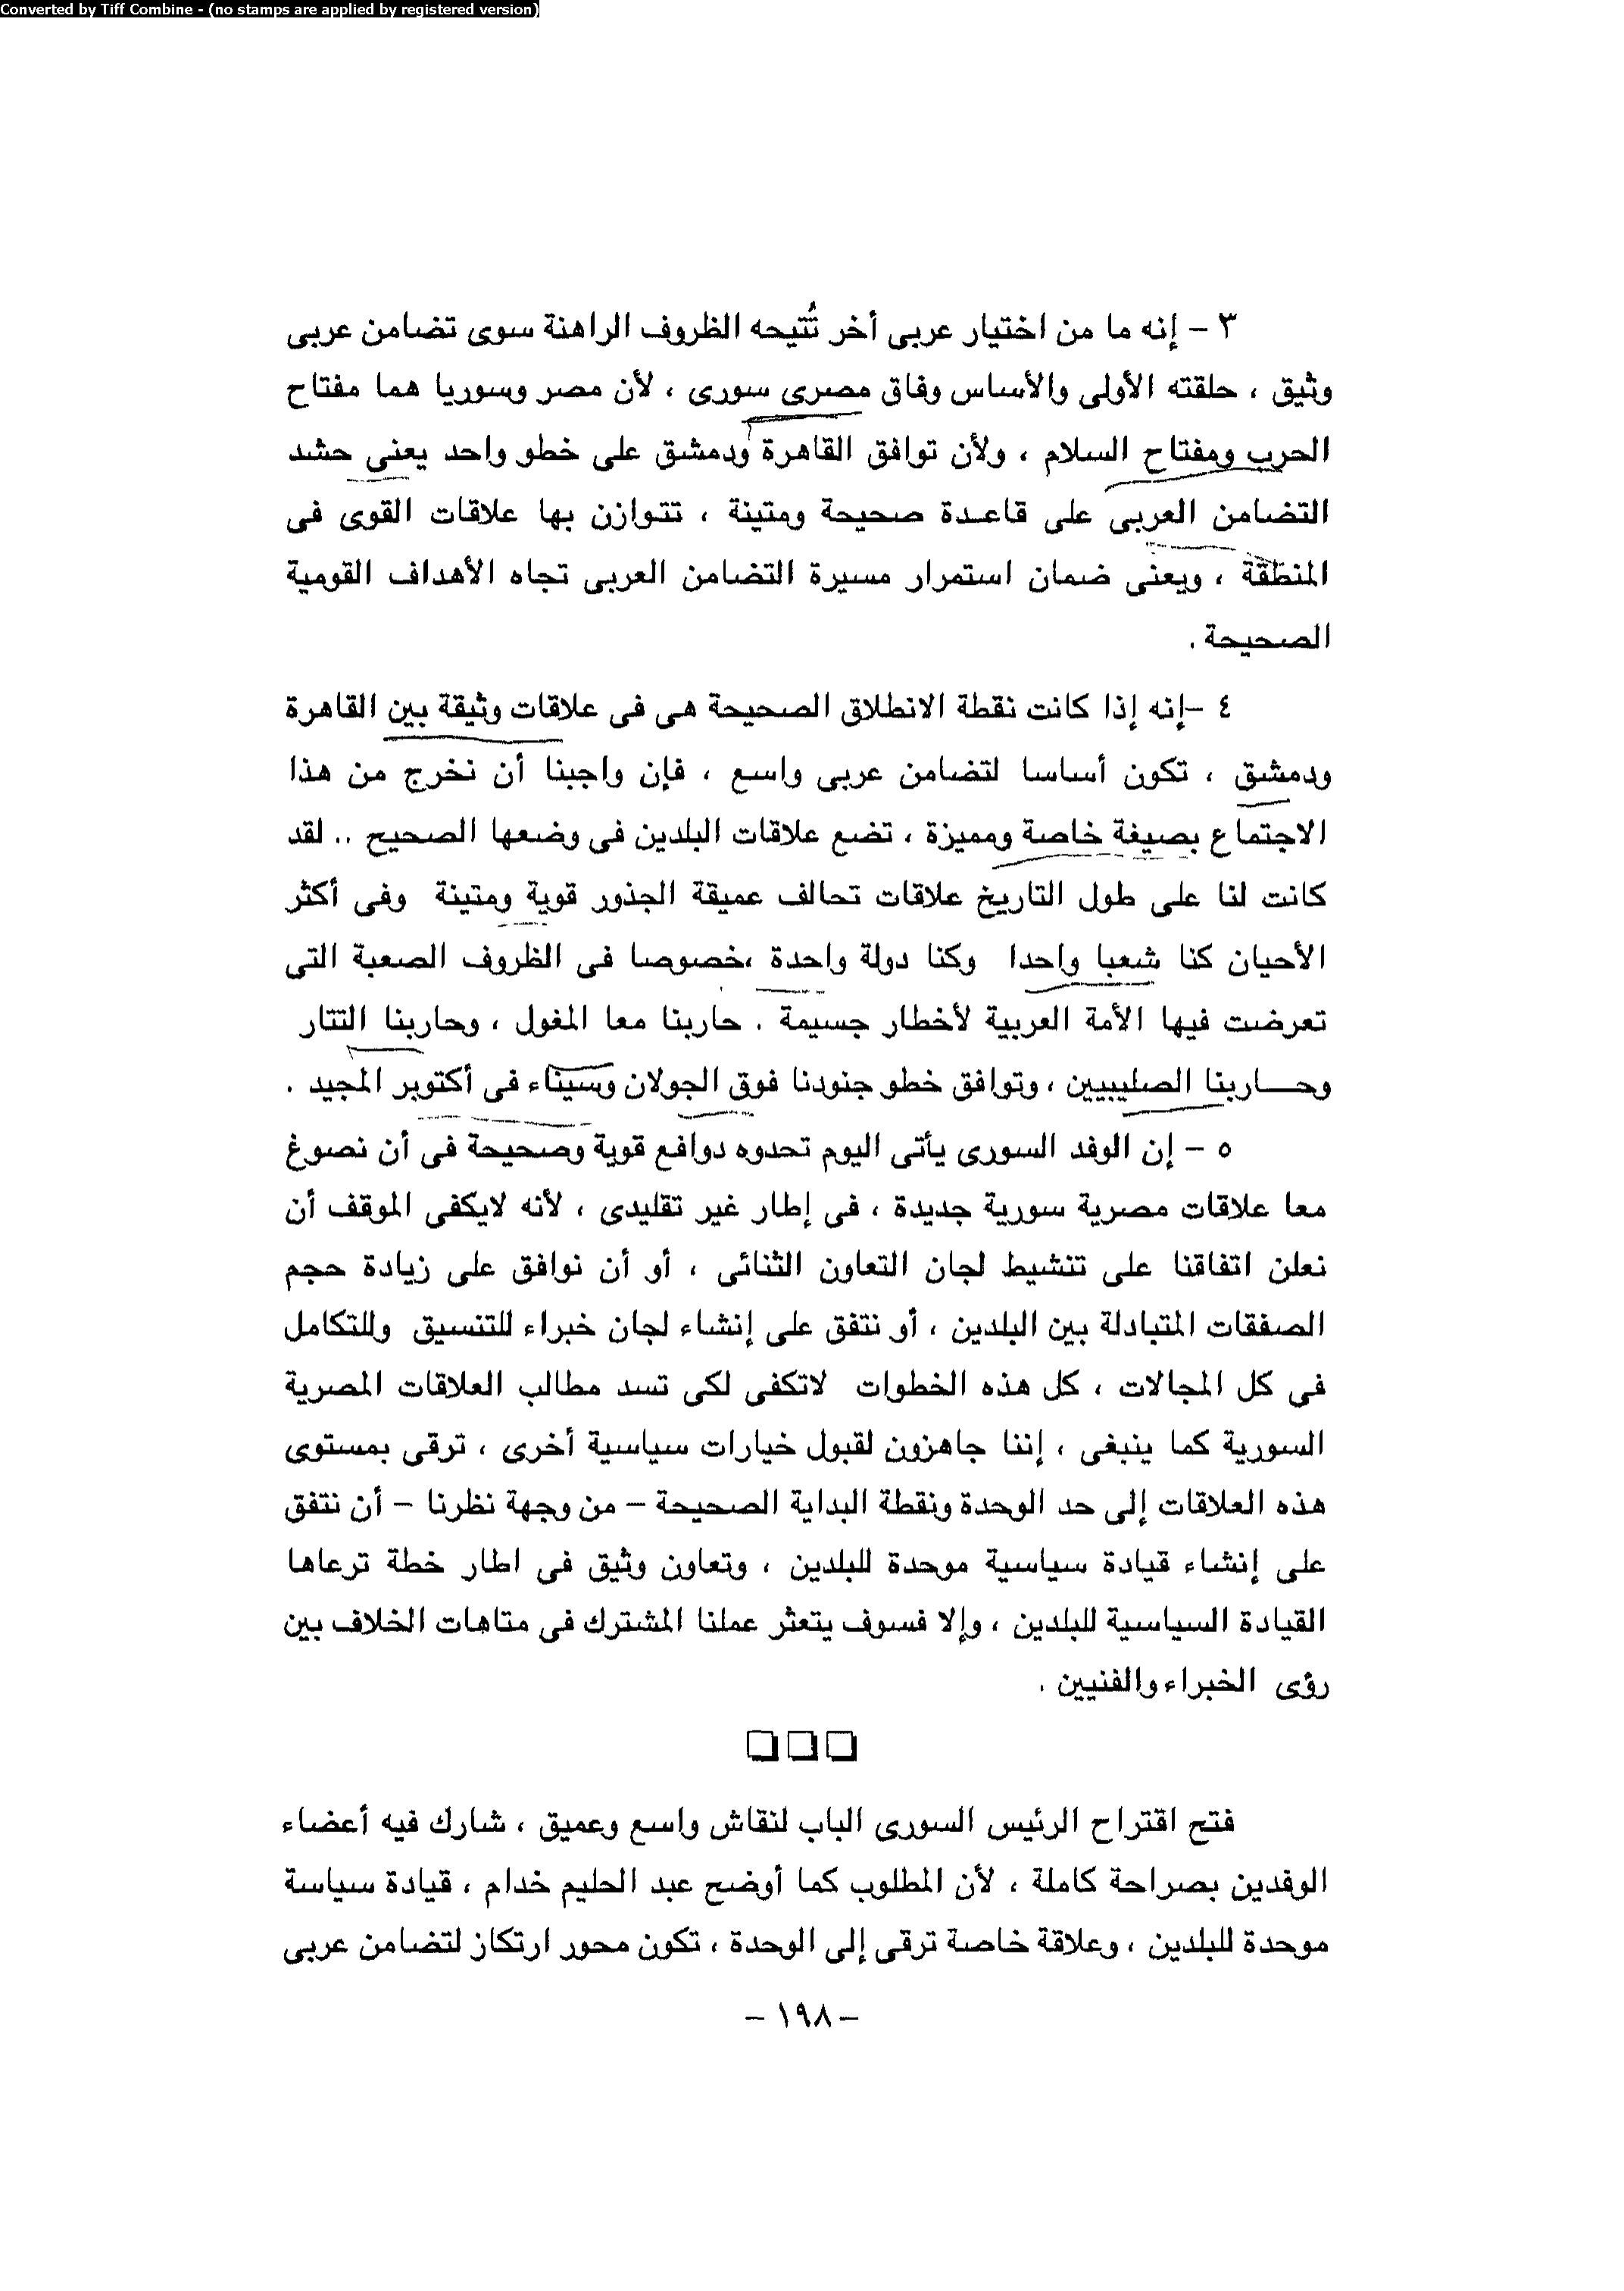 Converted by Tiff Combine - (no stamps are applied by registered version)
٣ – إنه ما من اختيار عربى أخر تُتيحه الظروف الراهنة سوى تضامن عربى
وثيق ، حلقته الأولى والأساس وفاق مصرى سورى ، لأن مصر وسوريا هما مفتاح
الحرب ومفتاح السلام ، ولأن توافق القاهرة ودمشق على خطو واحد يعنى حشد
التضامن العربى على قاعدة صحيحة ومتينة ، تتوازن بها علاقات القوى فى
المنطقة ، ويعنى ضمان استمرار مسيرة التضامن العربى تجاه الأهداف القومية
الصحيحة .
٤ –إنه إذا كانت نقطة الانطلاق الصحيحة هى فى علاقات وثيقة بين القاهرة
ودمشق ، تكون أساسا لتضامن عربى واسع ، فإن واجبنا أن نخرج من هذا
الاجتماع بصيغة خاصة ومميزة ، تضع علاقات البلدين فى وضعها الصحيح .. لقد
كانت لنا على طول التاريخ علاقات تحالف عميقة الجذور قوية ومتينة وفى أكثر
الأحيان كنا شعبا واحدا وكنا دولة واحدة ،خصوصا فى الظروف الصعبة التى
تعرضت فيها الأمة العربية لأخطار جسيمة . حاربنا معا المغول ، وحاربنا التتار
وحـــاربنا الصليبيين ، وتوافق خطو جنودنا فوق الجولان وسيناء فى أكتوبر المجيد .
٥ – إن الوفد السورى يأتى اليوم تحدوه دوافع قوية وصحيحة فى أن نصوغ
معا علاقات مصرية سورية جديدة ، فى إطار غير تقليدى ، لأنه لايكفى الموقف أن
نعلن اتفاقنا على تنشيط لجان التعاون الثنائى ، أو أن نوافق على زيادة حجم
الصفقات المتبادلة بين البلدين ، أو نتفق على إنشاء لجان خبراء للتنسيق وللتكامل
فى كل المجالات ، كل هذه الخطوات لاتكفى لكى تسد مطالب العلاقات المصرية
السورية كما ينبغى ، إننا جاهزون لقبول خيارات سياسية أخرى ، ترقى بمستوى
هذه العلاقات إلى حد الوحدة ونقطة البداية الصحيحة – من وجهة نظرنا – أن نتفق
على إنشاء قيادة سياسية موحدة للبلدين ، وتعاون وثيق فى اطار خطة ترعاها
القيادة السياسية للبلدين ، وإلا فسوف يتعثر عملنا المشترك فى متاهات الخلاف بين
رؤى الخبراء والفنيين .
فتح اقتراح الرئيس السورى الباب لنقاش واسع وعميق ، شارك فيه أعضاء
الوفدين بصراحة كاملة ، لأن المطلوب كما أوضح عبد الحليم خدام ، قيادة سياسة
موحدة للبلدين ، وعلاقة خاصة ترقى إلى الوحدة ، تكون محور ارتكاز لتضامن عربى
– ١٩٨ –